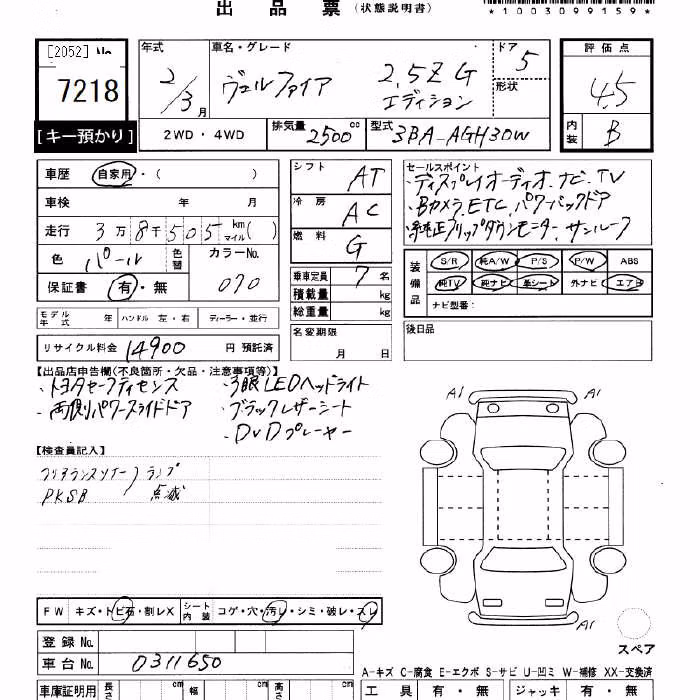 出品票(状態説明書)
*1003099159*
[2052] No
7218
[キー預かり]
年式 2/3月
車名・グレード ヴェルファイア 2.5Z G エディション
ドア 5
形状
2WD・4WD
排気量 2500cc
型式 3BA-AGH30W
評価点 4.5
内装 B
車歴 自家用・( )
車検 年 月
走行 3万8千505 km マイル( )
色 パール 色替
カラーNo. 070
保証書 有・無
モデル年式 年 ハンドル 左・右 ディーラー・並行
リサイクル料金 14900 円 預託済
シフト AT
冷房 AC
燃料 G
乗車定員 7名
積載量 kg
総重量 kg
名変期限
月 日
セールスポイント
・ディスプレイオーディオ.ナビ.TV
・Bカメラ.ETC.パワーバックドア
・純正フリップダウンモニター.サンルーフ
装備品
S/R 純A/W P/S P/W ABS
純TV 純ナビ 革シート 外ナビ エアB
ナビ型番:
後日品
【出品店申告欄(不良箇所・欠品・注意事項等)】
・トヨタセーフティセンス ・3眼LEDヘッドライト
・両側パワースライドドア ・ブラックレザーシート
・DVDプレーヤー
【検査員記入】
クリアランスソナー ランプ
PKSB 点滅
A1 A1
A1
スペア
FW キズ・トビ石・割レX シート内装 コゲ・穴・汚レ・シミ・破レ・スレ
登録No.
車台No. 0311650
A-キズ C-腐食 E-エクボ S-サビ U-凹ミ W-補修 XX-交換済
車庫証明用 長さ cm 幅 cm 高さ cm
工具 有・無 ジャッキ 有・無